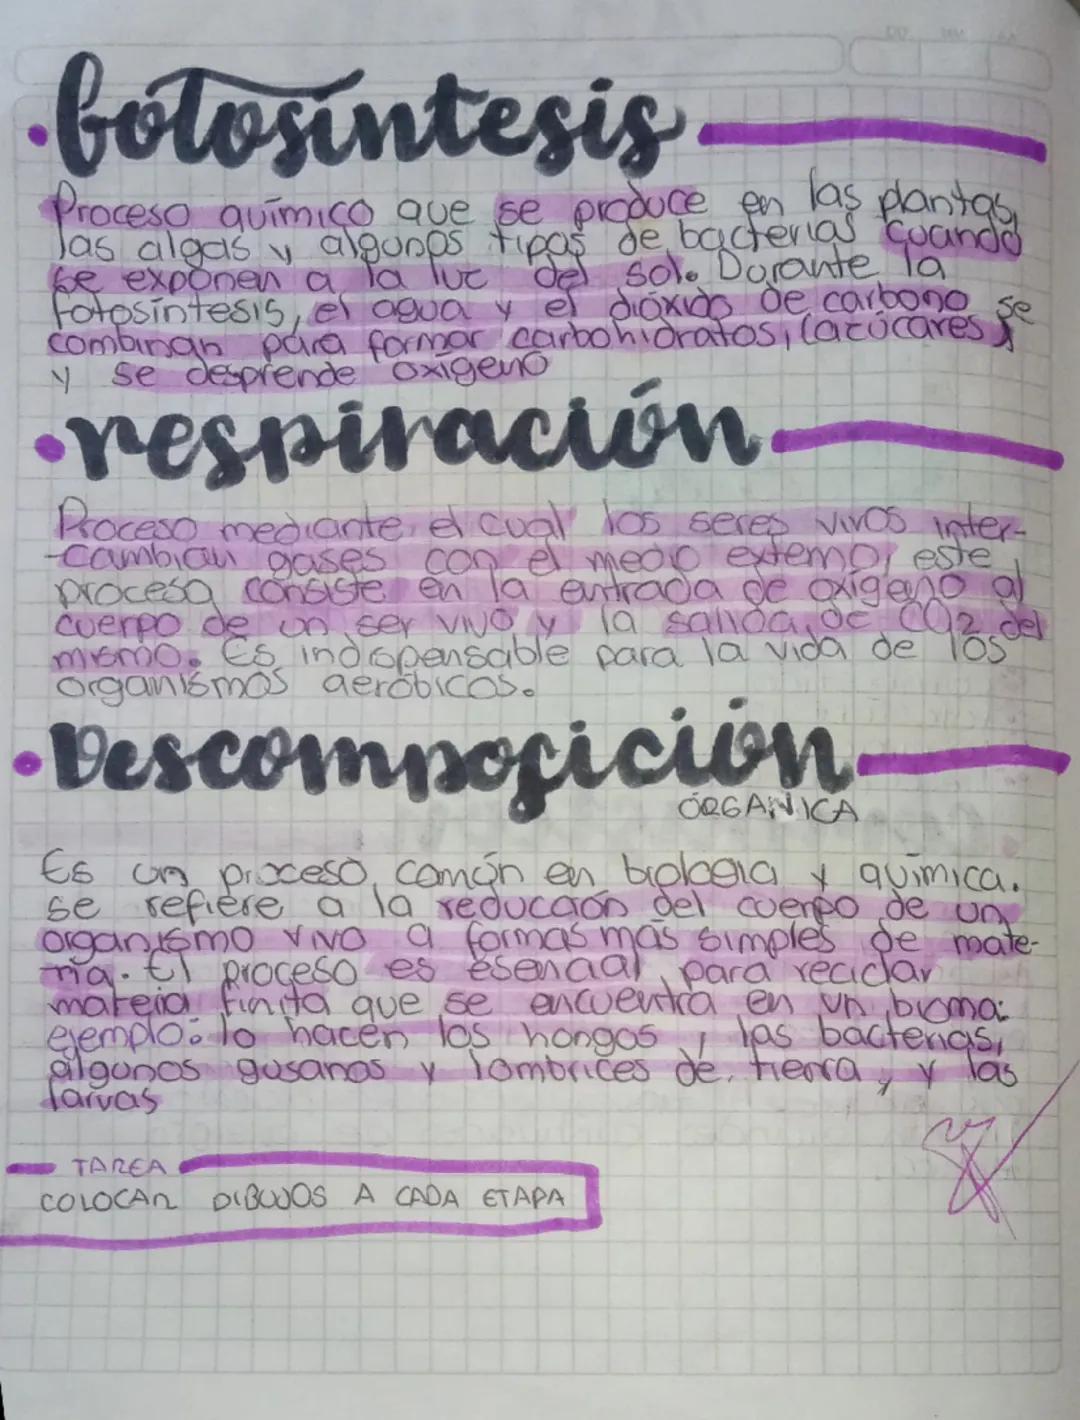 fotosíntesis
Proceso químico que se produce en las plantas,
las algas y algunos tipos de bacterias cuando
se exponen a la luz del sol. Durante la
fotosíntesis, el agua y el dióxido de carbono se
combinan para formar carbohidratos, (azúcares)
y se desprende oxígeno
respiración
Proceso mediante el cual los seres vivos inter-
cambian gases con el medio externo, este
proceso consiste en la entrada de oxígeno al
cuerpo de un ser vivo y la salida de CO2 del
mismo. Es indispensable para la vida de los
organismos aeróbicos.
Descomposición
ÓRGANICA
Es un proceso común en biología y química.
se refiere a la reducción del cuerpo de un
organismo vivo a formas más simples de mate-
ria. El proceso es esencial para reciclar
materia finita que se encuentra en un bioma:
ejemplo: lo hacen los hongos, las bacterias,
algunos gusanos y lombrices de tierra, y las
larvas
TAREA
COLOCAR DIBUJOS A CADA ETAPA